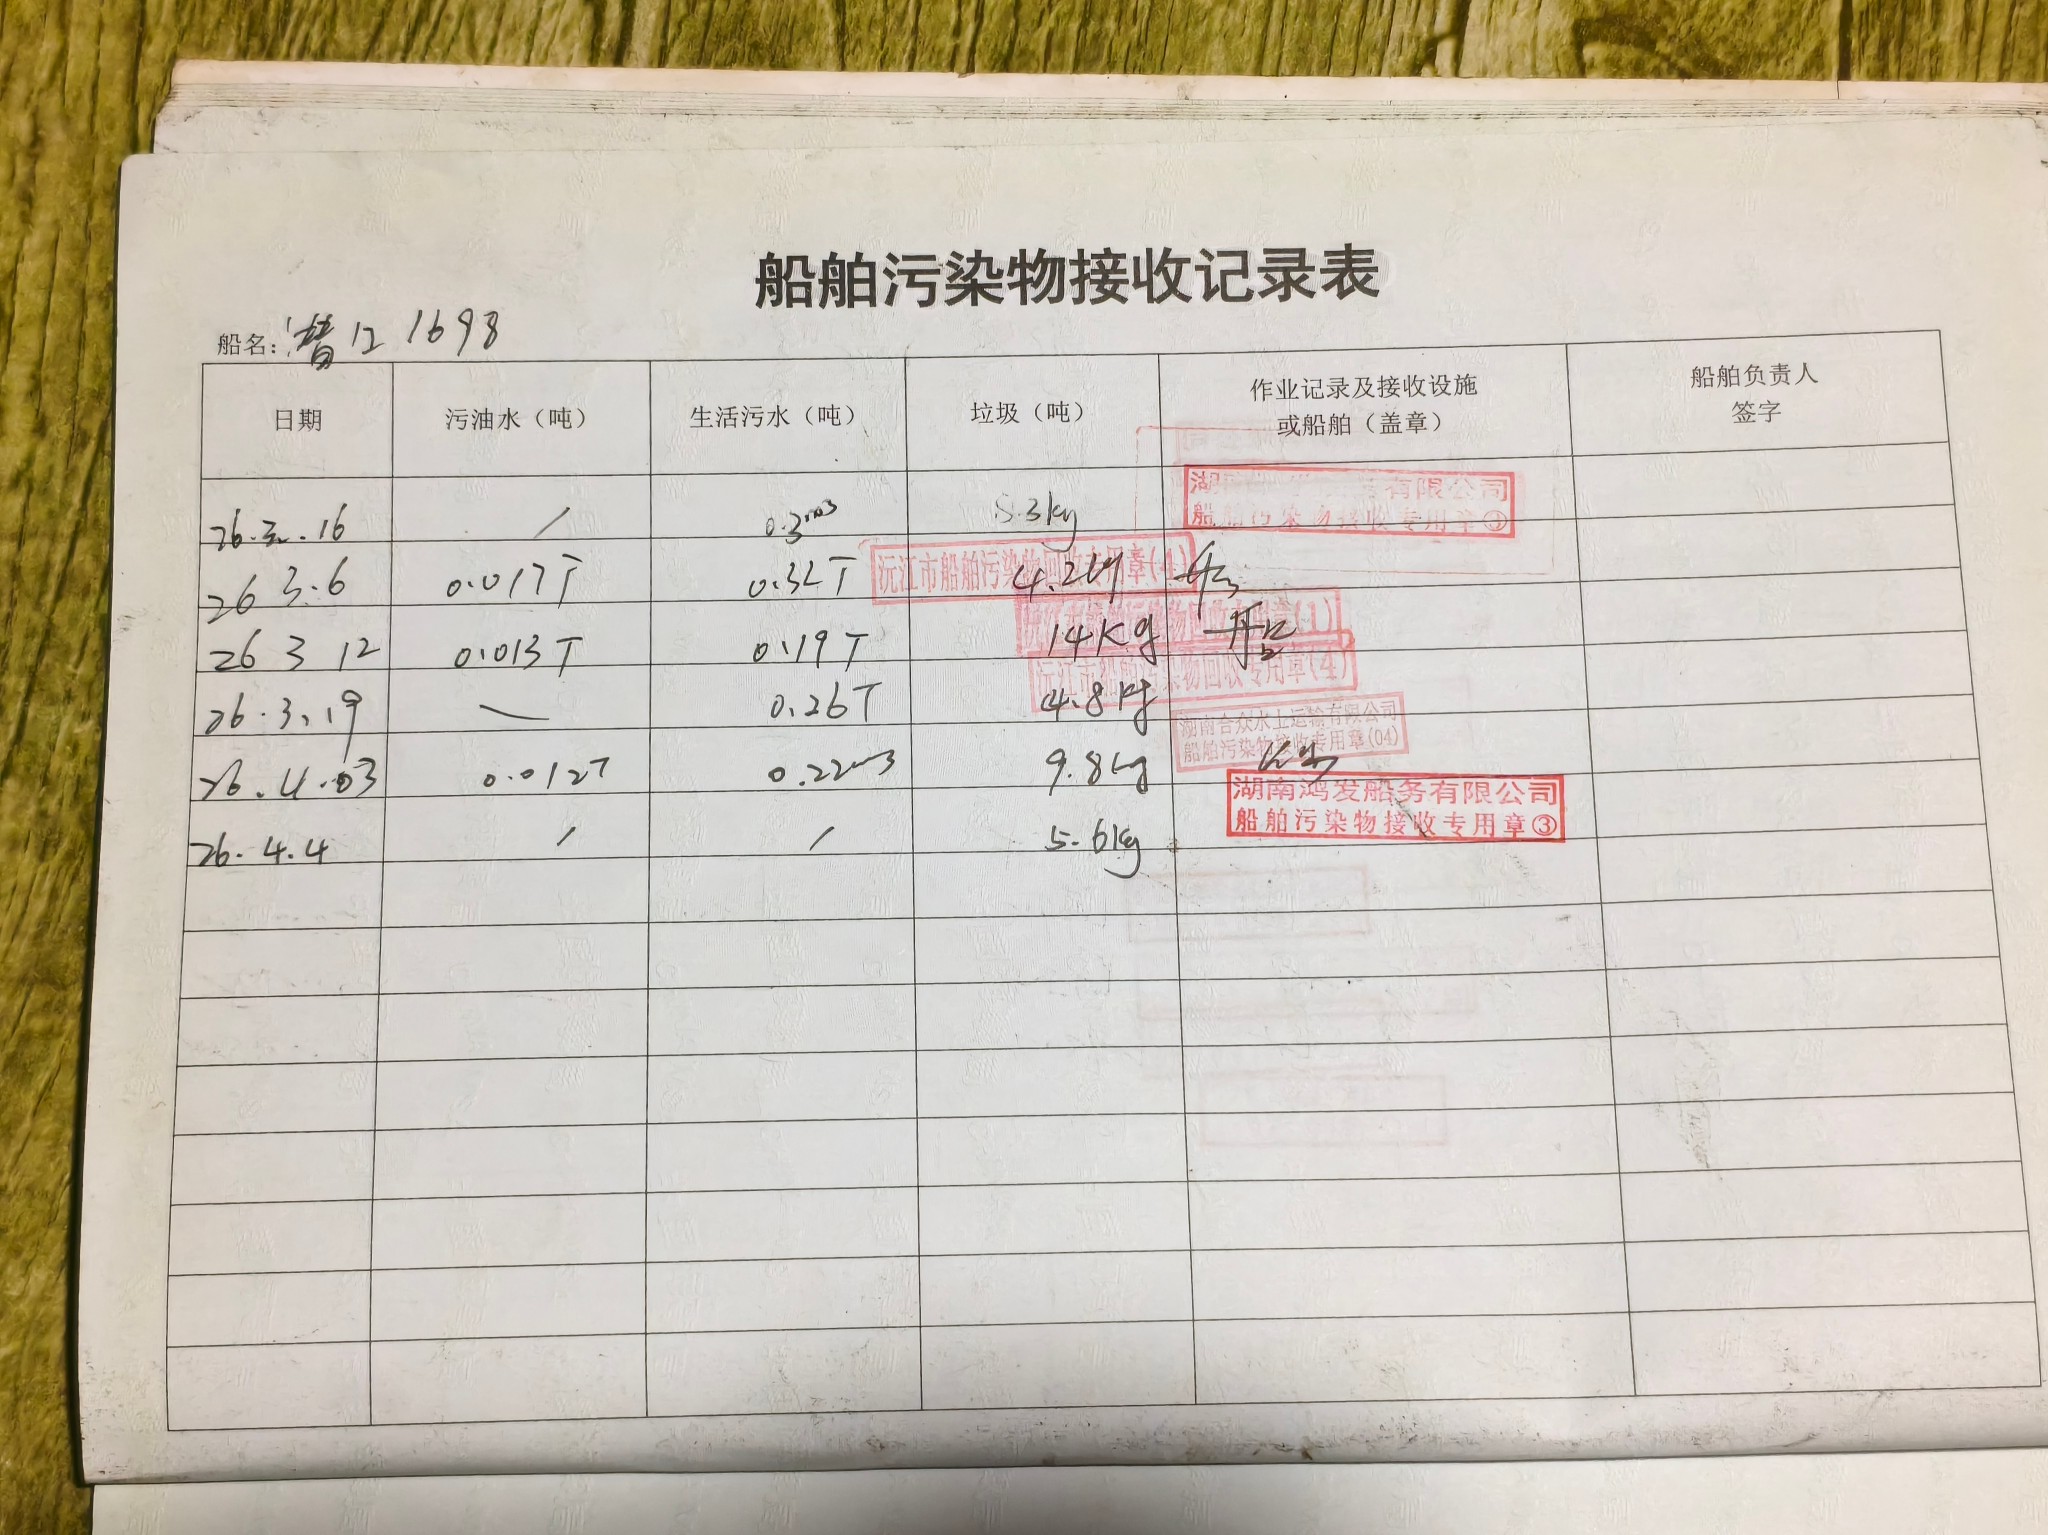 船舶污染物接收记录表
船名: 1698
日期 污油水（吨） 生活污水（吨） 垃圾（吨） 作业记录及接收设施或船舶（盖章） 船舶负责人签字
26.3.16 / 0.3m3 5.3kg
湖 务有限公司
船舶污染物接收专用章③
26 3.6 0.017T 0.32T 4.2kg
沅江市船舶污染物回收专用章(4)
26 3 12 0.013T 0.19T 14Kg
沅江市船舶污染物回收专用章(1)
26.3.19 — 0.26T 4.8kg
沅江市船舶污染物回收专用章(4)
湖南合众水上运输有限公司
船舶污染物接收专用章(04)
26.4.03 0.012T 0.22m3 9.8kg
26.4.4 / / 5.6kg
湖南鸿发船务有限公司
船舶污染物接收专用章③